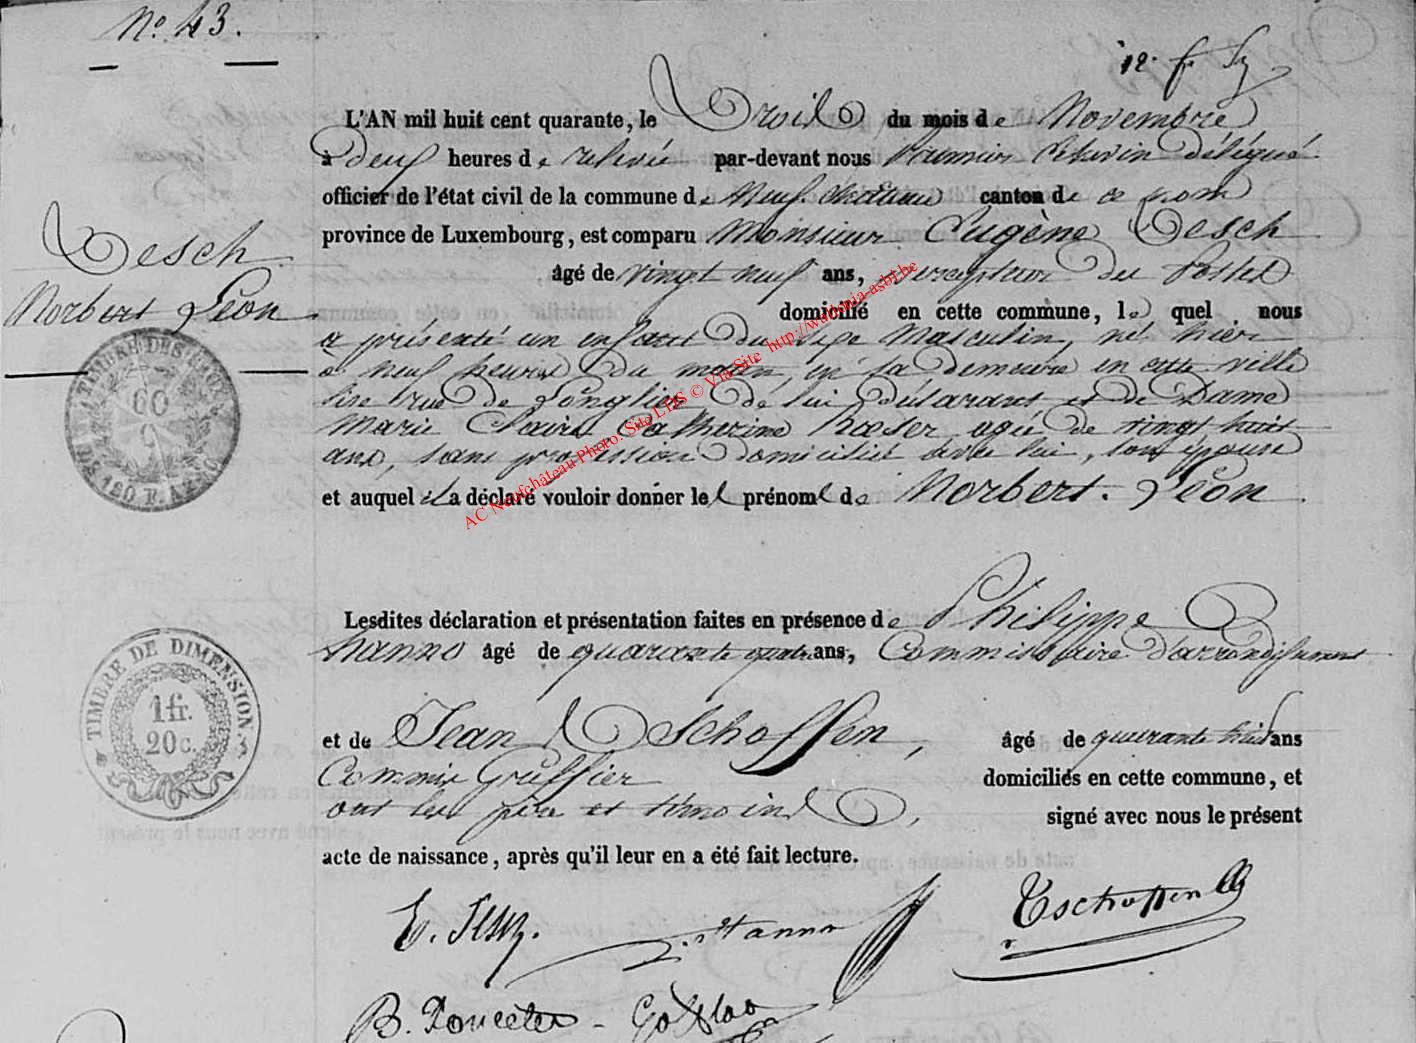 N° 43.
L'AN mil huit cent quarante, le Trois du mois de Novembre
à deux heures de relevée par-devant nous Premier Echevin délégué
officier de l'état civil de la commune de Neufchateau canton de ce nom
province de Luxembourg, est comparu Monsieur Eugène Tesch
âgé de vingt neuf ans, percepteur des Postes
domicilié en cette commune, le quel nous
a présenté un enfant du sexe Masculin, né hier
à neuf heures du matin, en sa demeure en cette ville
rue de Longlier de lui déclarant et de Dame
Marie Claire Catherine Nœser agée de vingt huit
ans, sans profession domiciliée avec lui, son épouse
et auquel il a déclaré vouloir donner les prénoms de Norbert. Léon
Tesch
Norbert Léon
TIMBRE DE DIMENSION.
1 fr.
20 c.
AC Neufchâteau Photo. Site LDS © Via Site http://wallonia-asbl.be
Lesdites déclaration et présentation faites en présence de Philippe
hanno âgé de quarante quatre ans, Commissaire d'arrondissement
et de Jean Tschoffen, âgé de quarante trois ans
Commis Greffier domiciliés en cette commune, et
ont les père et témoins, signé avec nous le présent
acte de naissance, après qu'il leur en a été fait lecture.
E. Tesch. Hanno Tschoffen